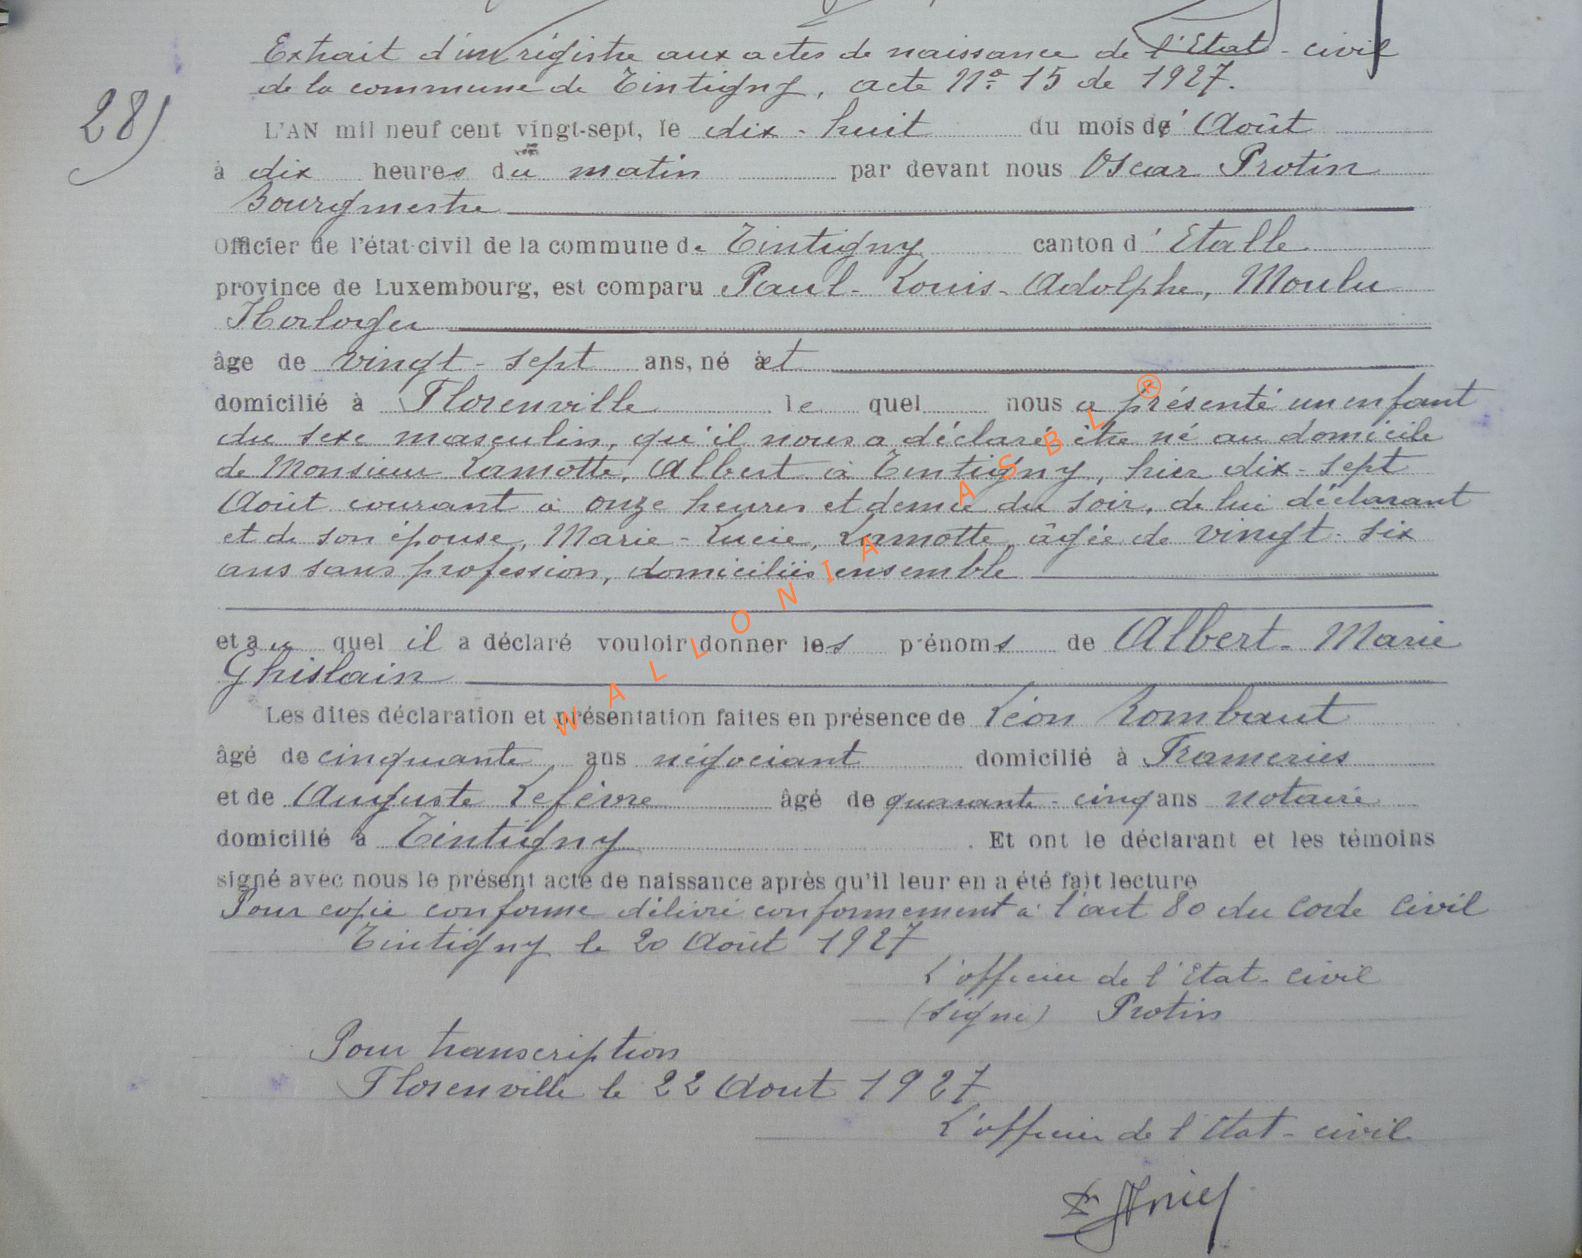 Extrait d'un régistre aux actes de naissance de l'Etat-civil
de la commune de Tintigny, acte No 15 de 1927.
28)
L'AN mil neuf cent vingt-sept, le dix-huit du mois de Août
à dix heures du matin par devant nous Oscar Protin
Bourgmestre
Officier de l'état-civil de la commune de Tintigny canton d'Etalle
province de Luxembourg, est comparu Paul-Louis-Adolphe, Moulu
Horloger
âge de vingt-sept ans, né à et
domicilié à Florenville lequel nous a présenté un enfant
du sexe masculin, qu'il nous a déclaré être né au domicile
de Monsieur Lamotte, Albert à Tintigny, hier dix-sept
Août courant à onze heures et demie du soir, de lui déclarant
et de son épouse, Marie-Lucie, Lamotte, âgée de vingt-six
ans sans profession, domiciliés ensemble
et au quel il a déclaré vouloir donner les prénoms de Albert-Marie
Ghislain
Les dites déclaration et présentation faites en présence de Léon Rombaut
âgé de cinquante ans négociant domicilié à Frameries
et de Auguste Lefèvre âgé de quarante-cinq ans notaire
domicilié à Tintigny. Et ont le déclarant et les témoins
signé avec nous le présent acte de naissance après qu'il leur en a été fait lecture
Pour copie conforme délivré conformement à l'art 80 du code civil
Tintigny le 20 Août 1927
L'officier de l'Etat-civil
(signé) Protin
Pour transcription
Florenville le 22 Aout 1927
L'officier de l'Etat-civil
WALLONIA ASBL ®